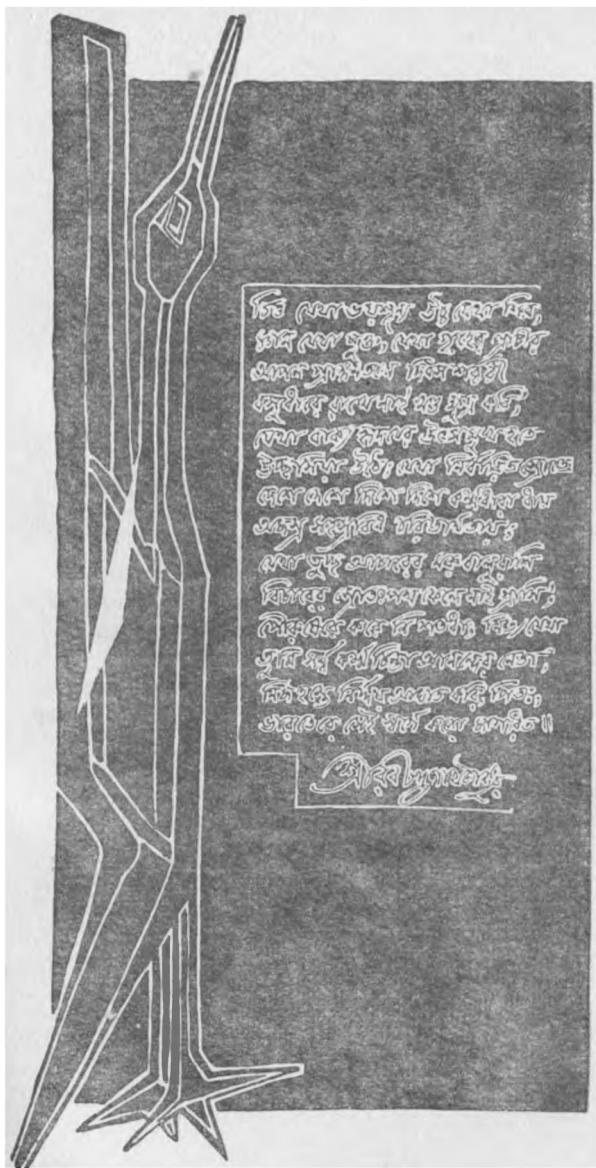 চিত্ত যেথা ভয়শূন্য উচ্চ যেথা শির,
জ্ঞান যেথা মুক্ত, যেথা গৃহের প্রাচীর
আপন প্রাঙ্গণতলে দিবস শর্ব্বরী
বসুধারে রাখে নাই খণ্ড ক্ষুদ্র করি,
যেথা বাক্য হৃদয়ের উৎসমুখ হতে
উচ্ছ্বসিয়া উঠে, যেথা নির্বারিত স্রোতে
দেশে দেশে দিশে দিশে কর্মধারা ধায়
অজস্র সহস্রবিধ চরিতার্থতায়;
যেথা তুচ্ছ আচারের মরুবালুরাশি
বিচারের স্রোতঃপথ ফেলে নাই গ্রাসি,
পৌরুষেরে করে নি শতধা; নিত্য যেথা
তুমি সর্ব্ব কর্ম্ম চিন্তা আনন্দের নেতা,
নিজ হস্তে নির্দ্দয় আঘাত করি, পিতঃ,
ভারতেরে সেই স্বর্গে করো জাগরিত॥
শ্রীরবীন্দ্রনাথ ঠাকুর